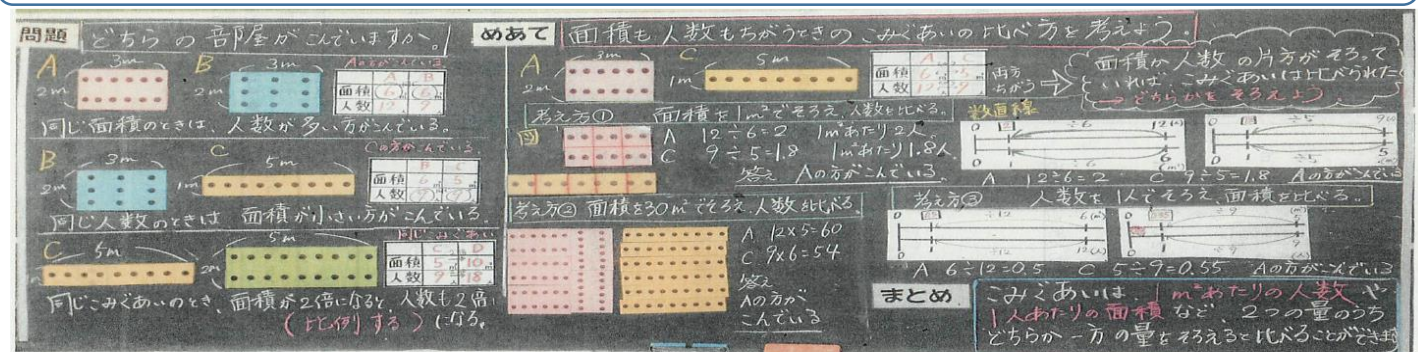 問題 どちらの部屋がこんでいますか。
A 3m 2m
B 3m 2m
Aの方がこんでいる
A B
面積 6 6
人数 12 9
同じ面積のときは、人数が多い方がこんでいる。
B 3m 2m
C 5m 1m
Cの方がこんでいる
B C
面積 6 5
人数 9 9
同じ人数のときは 面積が小さい方がこんでいる。
C 5m
5m 2m
同じこみぐあい
C D
面積 5 10
人数 9 18
同じこみぐあいのとき、面積が2倍になると、人数も2倍
(比例する)になる。
めあて 面積も人数もちがうときのこみぐあいの比べ方を考えよう。
A 3m 2m
C 5m 1m
A C
面積 6 5
人数 12 9
両方ちがう
面積か人数の片方がそろって
いれば、こみぐあいは比べられた
→どちらかをそろえよう。
考え方① 面積を1m²でそろえ、人数を比べる。
図
A 12÷6=2 1mあたり2人
C 9÷5=1.8 1m²あたり1.8人
答え Aの方がこんでいる。
数直線
0 2 ÷6 12(人)
0 1 ÷6 6(m²)
A 12÷6=2
0 ÷5 9(人)
0 1 ÷5 5
C 9÷5=1.8 Aの方がこんでいる
考え方② 面積を30m²でそろえ、人数を比べる。
A 12×5=60
C 9×6=54
答え
Aの方が
こんでいる
考え方③ 人数を1人でそろえ、面積を比べる。
0 ÷12 6(m²)
0 1 ÷12 12(人)
A 6÷12=0.5
0 ÷9 5
0 1 ÷9 9
C 5÷9=0.55 Aの方がこんでいる
まとめ こみぐあいは、1m²あたりの人数や
1人あたりの面積など、2つの量のうち
どちらか一方の量をそろえると比べることができる